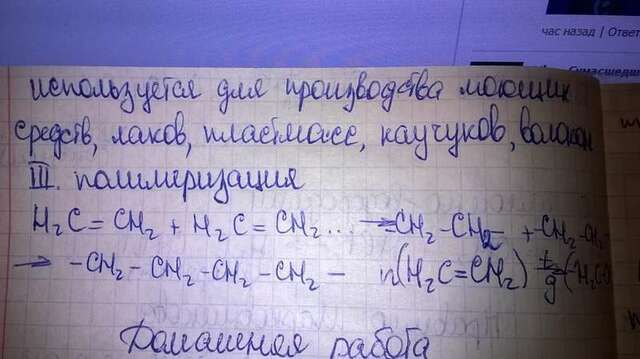 час назад | Ответ
Сумасшедш
используется для производства моющих
средств, лаков, пластмасс, каучуков, волокон
III. полимеризация
H₂C=CH₂ + H₂C=CH₂... → -CH₂-CH₂- + -CH₂-CH₂-
→ -CH₂-CH₂-CH₂-CH₂- n(H₂C=CH₂) (-H₂C
Домашняя работа